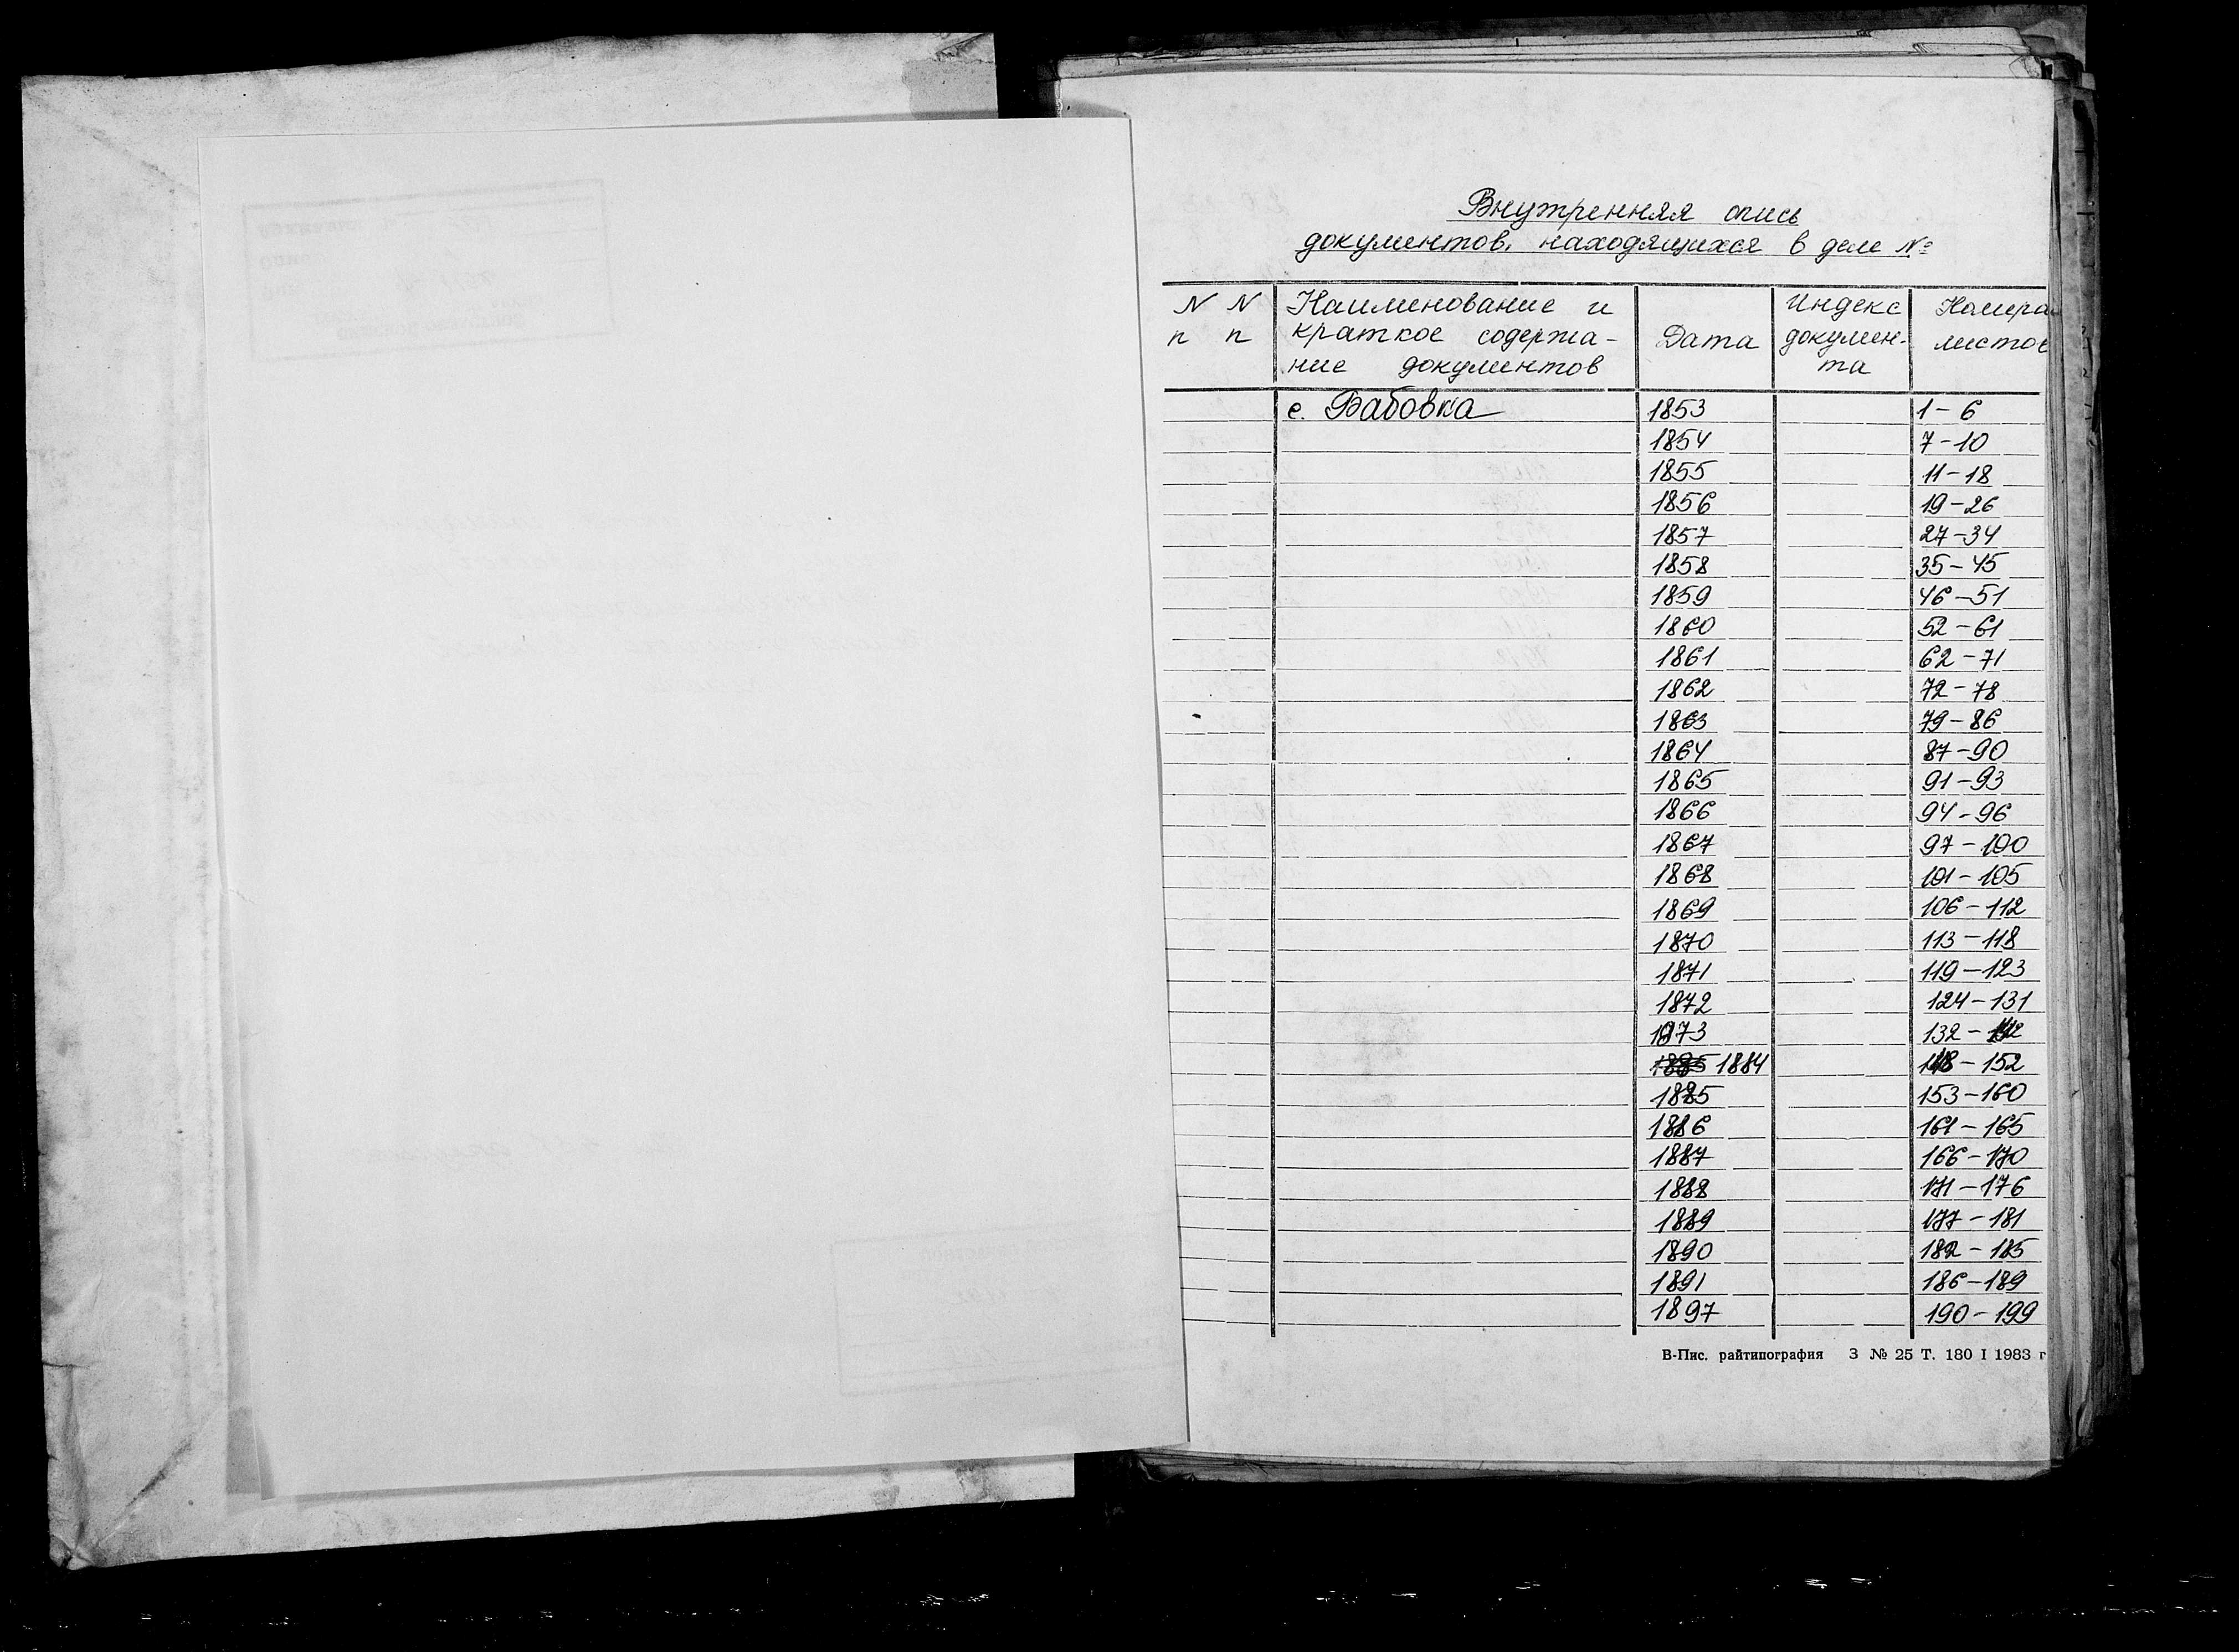 Внутренняя опись
документов, находящихся в деле №
N N Наименование и Индекс Номера
п п краткое содержа- Дата докумен- листов
ние документов та
с. Бабовка 1853 1-6
1854 7-10
1855 11-18
1856 19-26
1857 27-34
1858 35-45
1859 46-51
1860 52-61
1861 62-71
1862 72-78
1863 79-86
1864 87-90
1865 91-93
1866 94-96
1867 97-100
1868 101-105
1869 106-112
1870 113-118
1871 119-123
1872 124-131
1873 132-
1884 -152
1885 153-160
1886 161-165
1887 166-170
1888 171-176
1889 177-181
1890 182-185
1891 186-189
1897 190-199
В-Пис. райтипография З № 25 Т. 180 I 1983 г